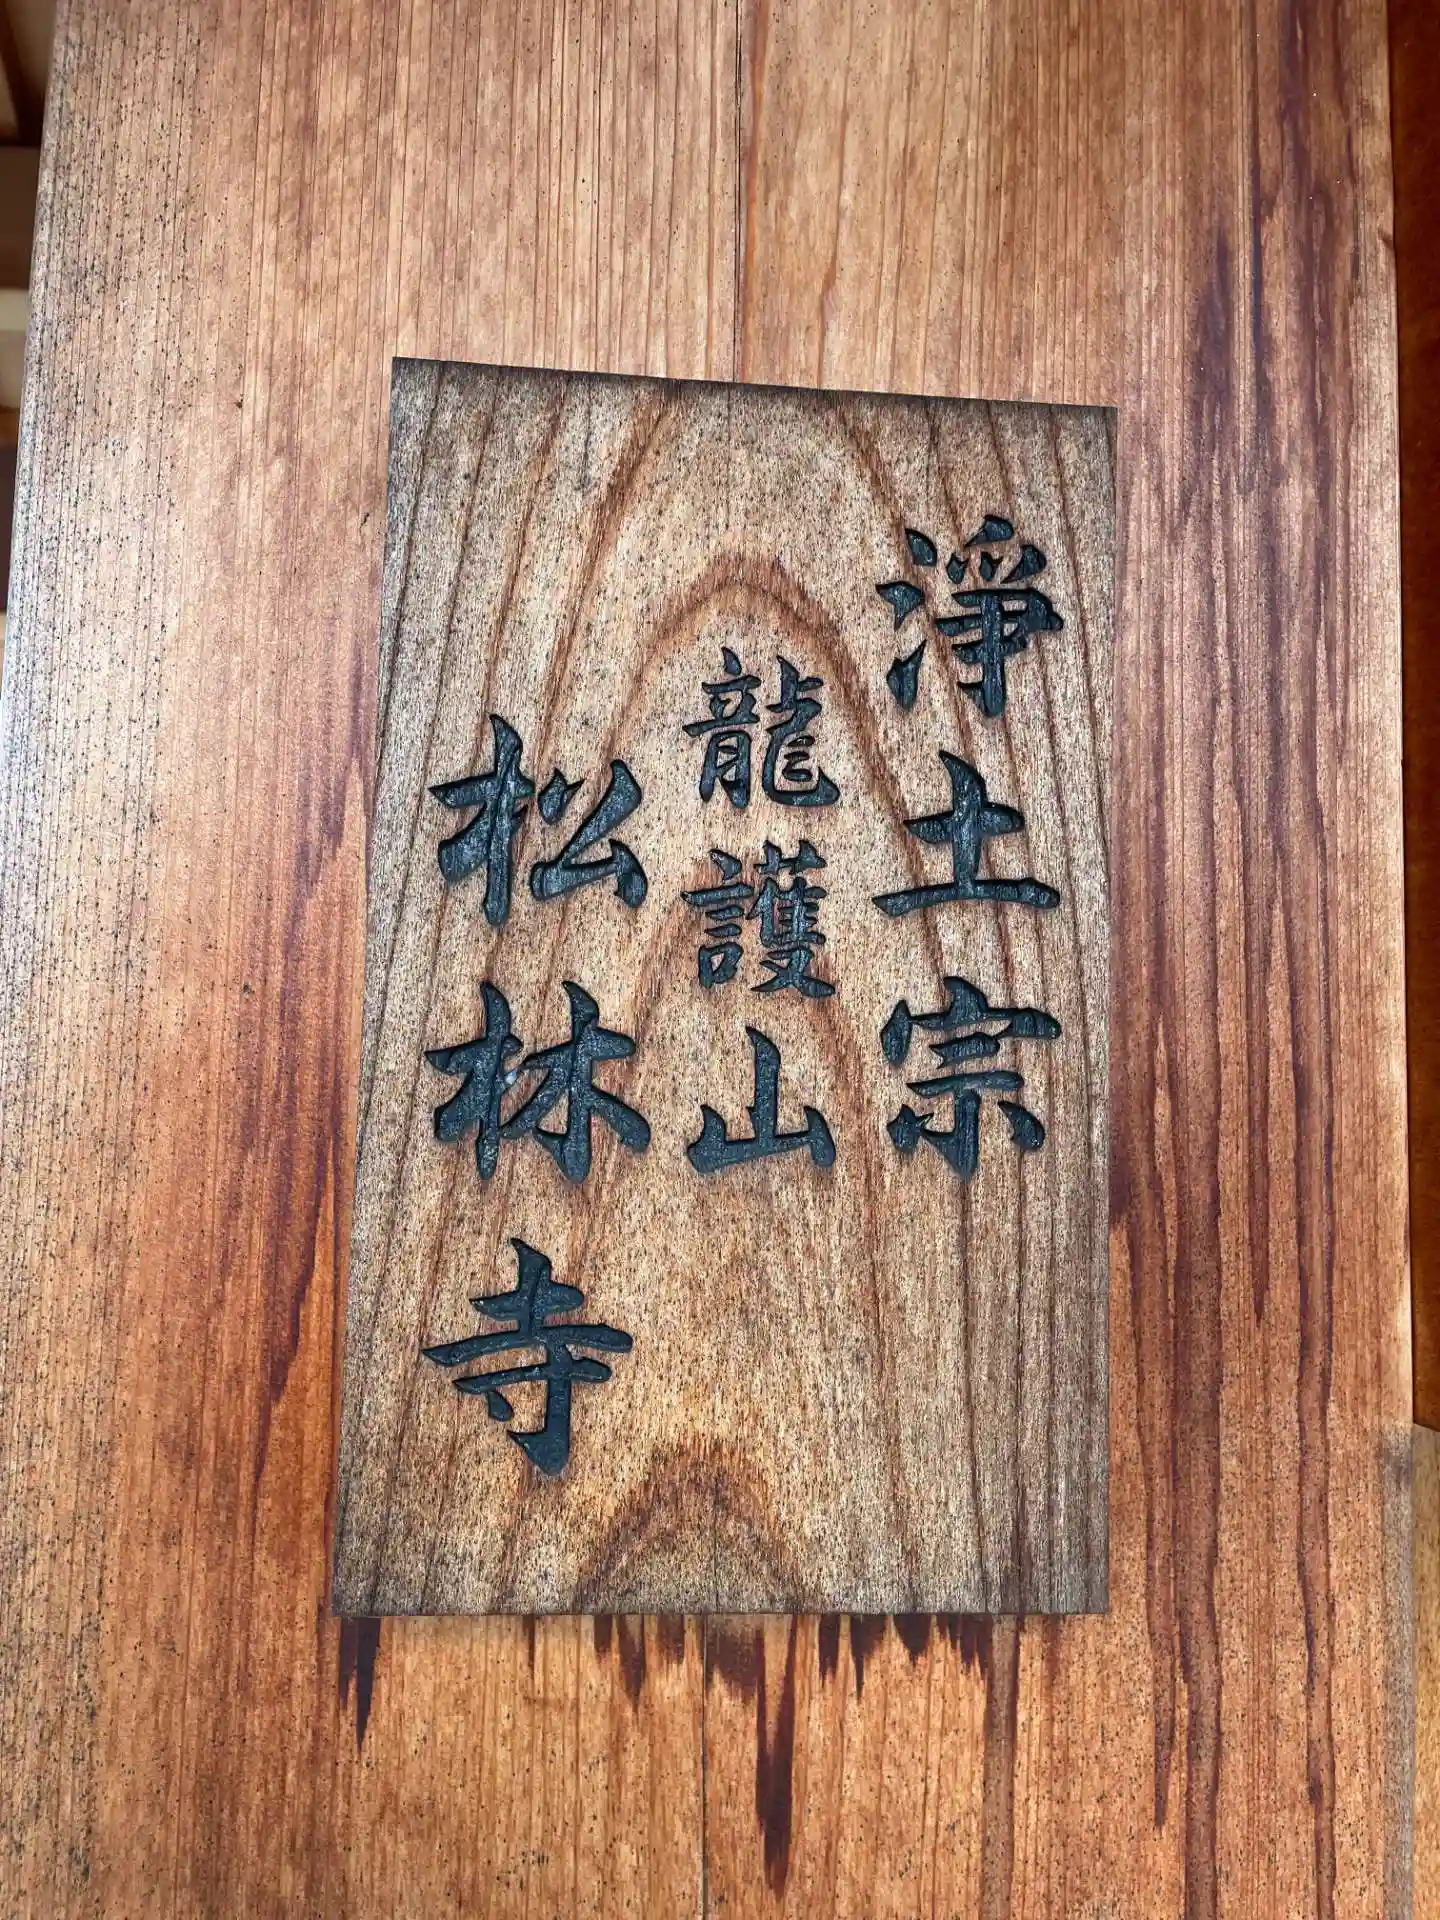 淨土宗
龍護山
松林寺